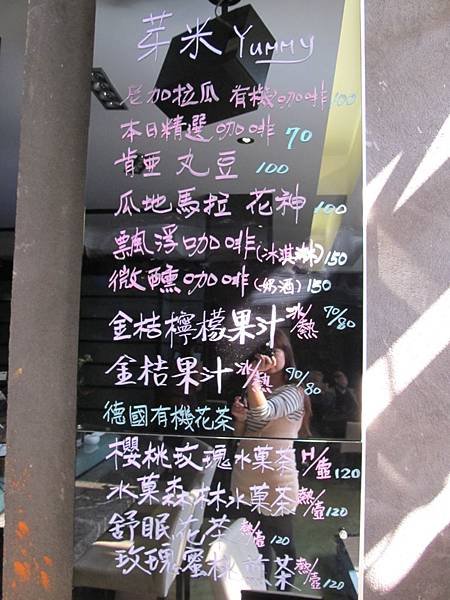 芽米 Yummy
尼加拉瓜 有機咖啡 100
本日精選咖啡 70
肯亞 丸豆 100
瓜地馬拉 花神 100
飄浮咖啡(冰淇淋) 150
微醺咖啡(奶酒) 150
金桔檸檬果汁 冰/熱 70/80
金桔果汁 冰/熱 70/80
德國有機花茶
櫻桃玫瑰水菓茶 H/壺 120
水菓森林水菓茶 熱/壺 120
舒眠花茶 熱/壺 120
玫瑰蜜桃 茶 熱/壺 120